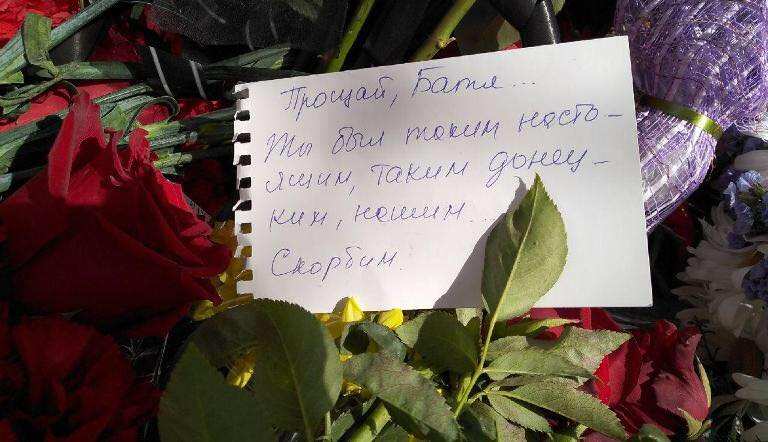 Прощай, Батя...
Ты был таким насто-
ящим, таким донец-
ким, нашим...
Скорбим.